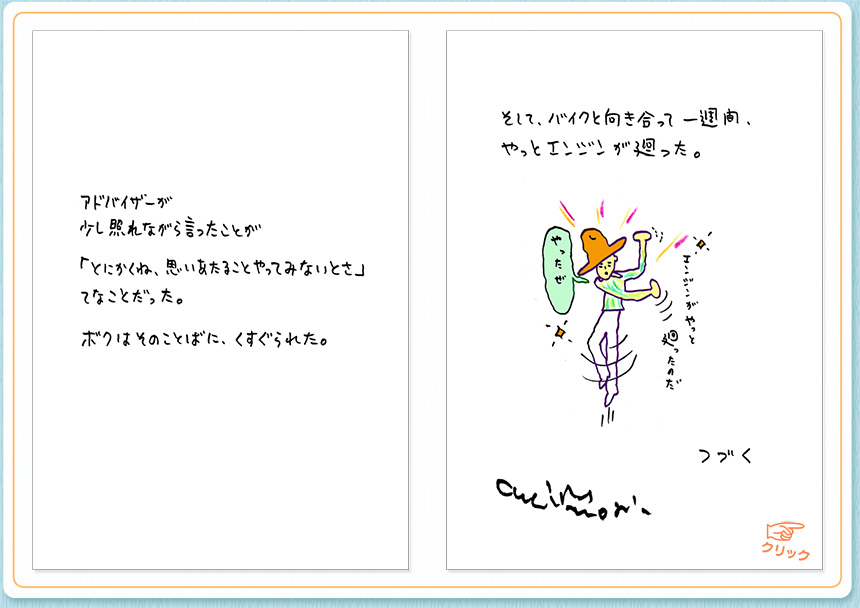 アドバイザーが
少し照れながら言ったことが
「とにかくね、思いあたることやってみないとさ」
てなことだった。
ボクはそのことばに、くすぐられた。
そして、バイクと向き合って一週間、
やっとエンジンが廻った。
やったぜ
エンジンがやっと
廻ったのだ
つづく
クリック